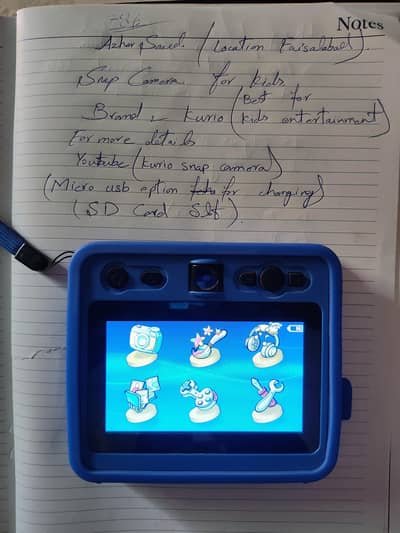 Notes
Azhar Saeed / Location Faisalabad).
Snap Camera for kids
Brand - Kurio (Best for
kids entertainment)
For more details
Youtube (Kurio snap camera)
(Micro usb option for charging)
(SD Card Slot).